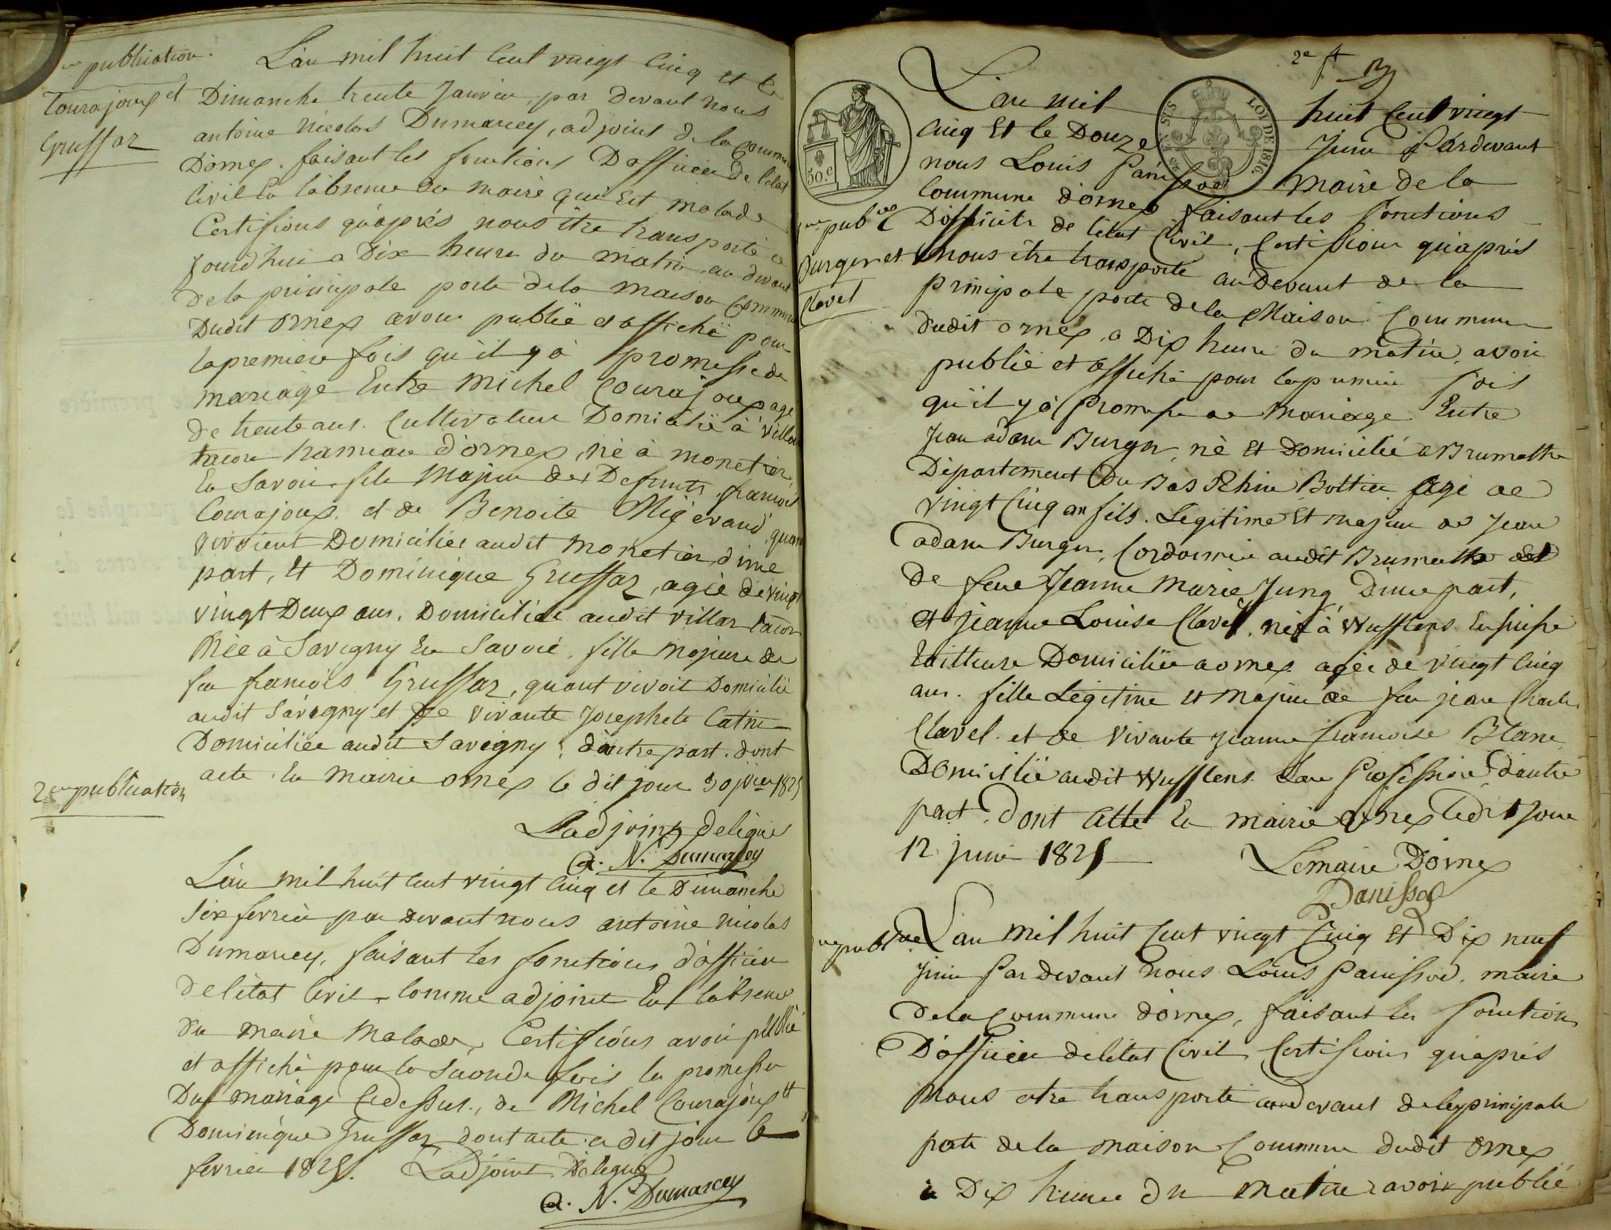 publication.
Courajoux et
Gruffaz
L'an mil huit Cent vingt Cinq et le
Dimanche trente Janvier, par devant nous
antoine nicolas Dumarcey, adjoint de la Commune
Dornex. faisant les fonctions D'officier De l'etat
Civil En l'absence du maire qui Est malade
Certifions qu'après nous être transporté a
jourd'hui a Dix heure du matin au devant
De la principale porte de la maison Commune
Dudit ornex avoir publié et affiché pour
la premiere fois qu'il y à promesse de
mariage Entre Michel Courajoux agé
de trente ans. Cultivateur Domicilié à Villar
tacon hameau d'ornex, né à monetier
En Savoie fils Majeur des Defunts francois
Courajoux et de Benoite Migerand quand
vivoient Domiciliés audit monetier, d'une
part, Et Dominique Gruffaz, agée de vingt
vingt Deux ans. Domiciliée audit villar tacon
Née à Savigny En Savoie. fille majeure de
feu francois Gruffaz, quant vivoit Domicilié
audit Savigny et de vivante Josephete Catin
Domiciliée audit Savigny, d'autre part. dont
acte En Mairie ornex le dit jour 30 jvier 1825
L'adjoint delégué
a. N. Dumarcey
2me publication
L'an mil huit cent vingt cinq et le Dimanche
Six fevrier par devant nous antoine nicolas
Dumarcey, faisant les fonctions d'officier
de l'état Civil Comme adjoint En l'absence
du maire Malade, Certifions avoir publié
et affiché pour la seconde fois la promesse
Du mariage Cidessus, de Michel Courajoux et
Dominique Gruffaz dont acte a dit jour 6
fevrier 1825. L'adjoint Délégué
a. N. Dumarcey
2e ft
3
50.c
LOI DE 1816
L'an mil huit Cent vingt
Cinq Et le Douze Juin Pardevant
nous Louis Panissod Maire de la
Commune d'ornex faisant les fonctions
pub.on
Burger et
Clavel
D'officier de l'état Civil, Certifions qu'après
nous être transporté au Devant de la
principale porte de la Maison Commune
dudit ornex, a Dix heure du matin, avoir
publié et affiché pour la premiere fois
qu'il y à Promesse de Mariage Entre
Jean adam Burger, né Et Domicilié a Brumatte
Département Du Bas Rhin Bottier agé de
vingt Cinq an fils Legitime Et majeur de Jean
adam Burger, Cordonnier audit Brumatte et
de feue Jeanne Marie Jung D'une part,
et Jeanne Louise Clavel, née à Wufflens En suisse
tailleuse Domiciliée a ornex agée de vingt Cinq
ans. fille Légitime et Majeure de feu jean Charles
Clavel et de vivante jeanne francoise Blanc
Domicilié audit Wufflens Sans Profession d'autre
part. Dont Acte En mairie ornex ledit Jour
12 juin 1825
Lemaire D'ornex
Panissod
L'an Mil huit Cent vingt Cinq Et Dix neuf
juin Par devant nous Louis Panissod, maire
De la Commune d'ornex, faisant les fonctions
D'officier de l'état Civil, Certifions qu'après
Nous etre transporté au devant de la principale
porte de la Maison Commune dudit ornex
a Dix heure du Matin avoir publié